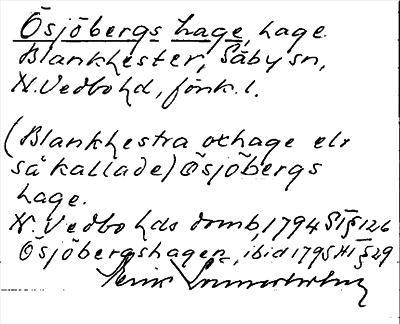 Ösjöbergs hage, hage.
Blankhester, Säby sn,
N. Vedbo hd, jönk. l.
(Blankhestra oxhage elr
så kallade) Ösjöbergs
hage.
N. Vedbo hds domb, 1794 § 126
Ösjöbergshagen, ibid 1795 § 29